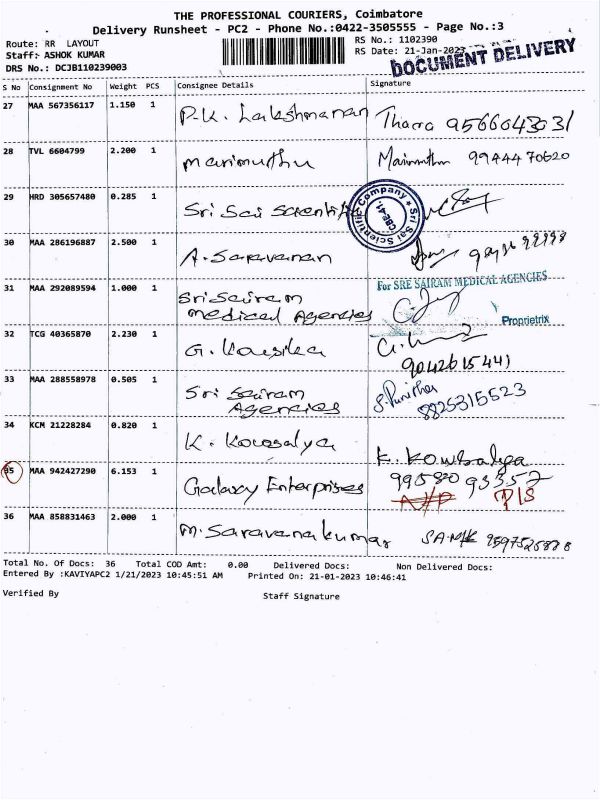 THE PROFESSIONAL COURIERS, Coimbatore
Delivery Runsheet - PC2 - Phone No.:0422-3505555 - Page No.:3
Route: RR LAYOUT
RS No.: 1102390
Staff: ASHOK KUMAR
RS Date: 21-Jan-2023
DOCUMENT DELIVERY
DRS No.: DCJB110239003
S No Consignment No Weight PCS Consignee Details Signature
27 MAA 567356117 1.150 1 P.K. Lakshmanan Tharra 9566043031
28 TVL 6604799 2.200 1 Marimuthu Marimuthu 9944470620
29 HRD 305657480 0.285 1 Sri Sai Scientific
Sri Sai Scientific Company
CBE-41.
30 MAA 286196887 2.500 1 A. Saravanan
31 MAA 292089594 1.000 1 Sri Sairam
Medical Agencies
For SRE SAIRAM MEDICAL AGENCIES
Proprietrix
32 TCG 40365870 2.230 1 G. Kausika
9042615441
33 MAA 288558978 0.505 1 Sri Sairam
Agencies
S. Punitha
8825315523
34 KCM 21228284 0.820 1 K. Kowsalya
K. Kowsalya
35 MAA 942427290 6.153 1 Galaxy Enterprises
99580 93357
36 MAA 858831463 2.000 1 M. Saravanakumar
Total No. Of Docs: 36 Total COD Amt: 0.00 Delivered Docs: Non Delivered Docs:
Entered By :KAVIYAPC2 1/21/2023 10:45:51 AM Printed On: 21-01-2023 10:46:41
Verified By Staff Signature